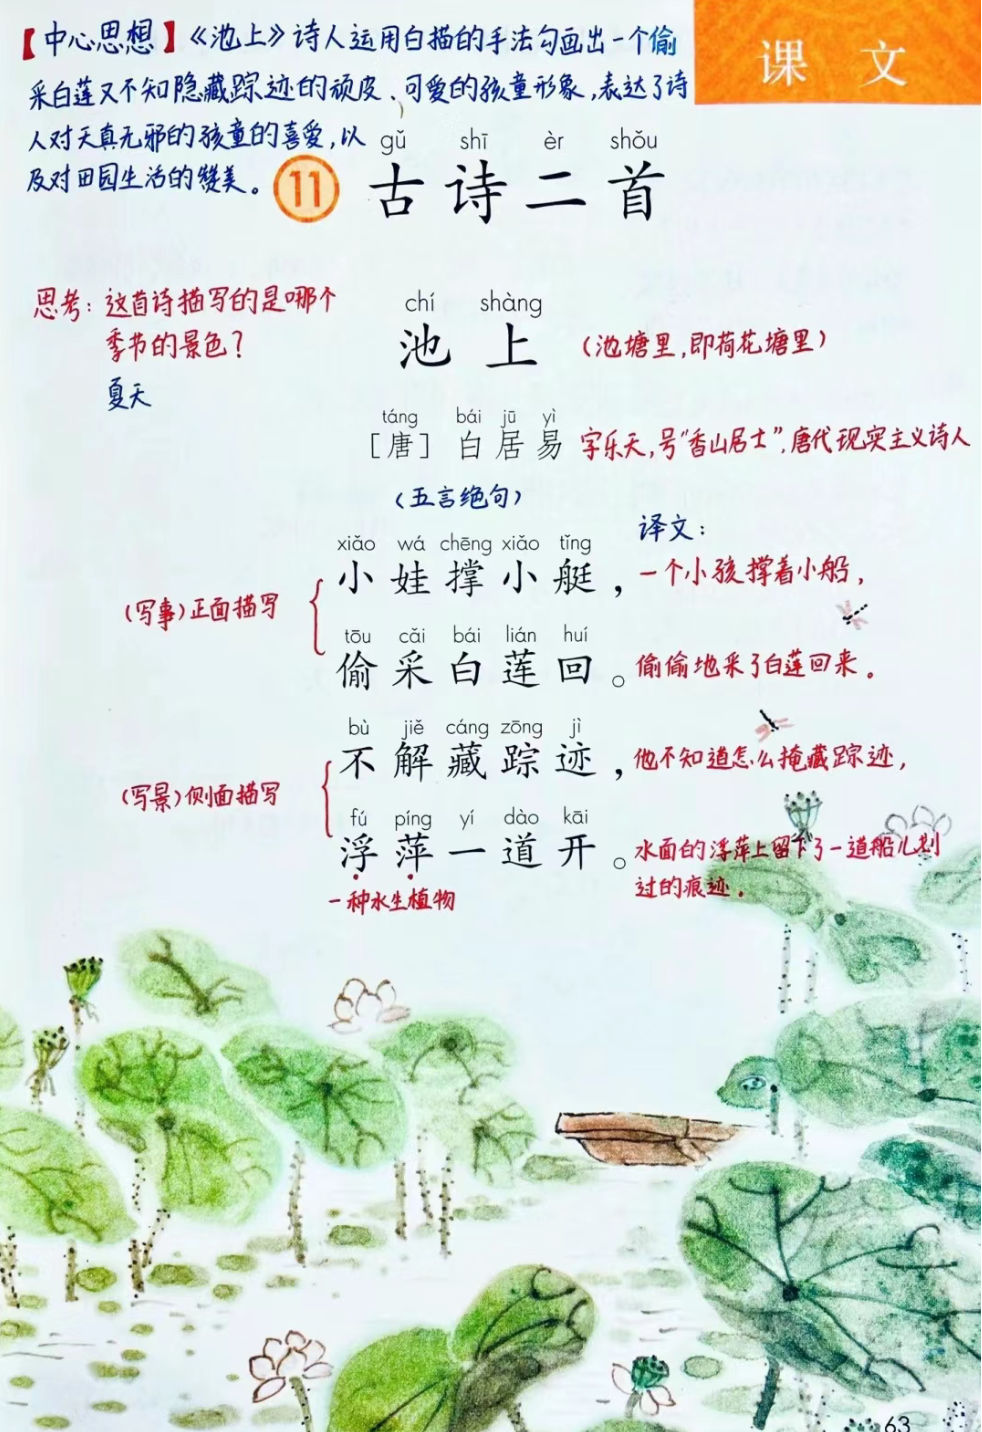 【中心思想】《池上》诗人运用白描的手法勾画出一个偷
课 文
采白莲又不知隐藏踪迹的顽皮、可爱的孩童形象，表达了诗
人对天真无邪的孩童的喜爱，以
及对田园生活的赞美。
gǔ shī èr shǒu
11 古诗二首
思考：这首诗描写的是哪个
季节的景色？
夏天
chí shàng
池 上 （池塘里，即荷花塘里）
táng bái jū yì
［唐］ 白居易 字乐天，号“香山居士”，唐代现实主义诗人
（五言绝句）
译文：
xiǎo wá chēng xiǎo tǐng
小娃撑小艇， 一个小孩撑着小船，
（写事）正面描写
tōu cǎi bái lián huí
偷采白莲回。 偷偷地采了白莲回来。
bù jiě cáng zōng jì
不解藏踪迹， 他不知道怎么掩藏踪迹，
（写景）侧面描写
fú píng yí dào kāi
浮萍一道开。 水面的浮萍上留下了一道船儿划
过的痕迹。
一种水生植物
63